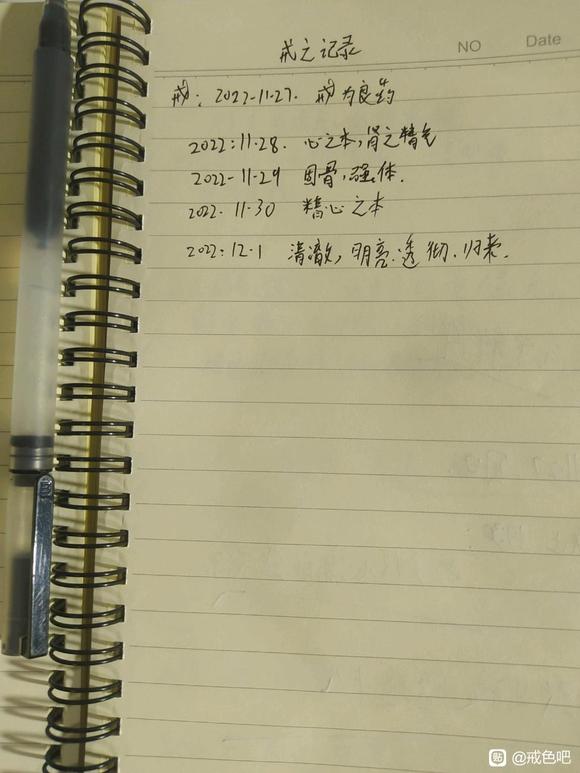 戒之记录
NO
Date
戒: 2022-11-27. 戒为良药
2022:11.28. 心之本,肾之精气
2022-11-29 固骨,强体.
2022. 11.30 精心之本
2022:12.1 清澈,明亮.透彻.归来.
贴 @戒色吧